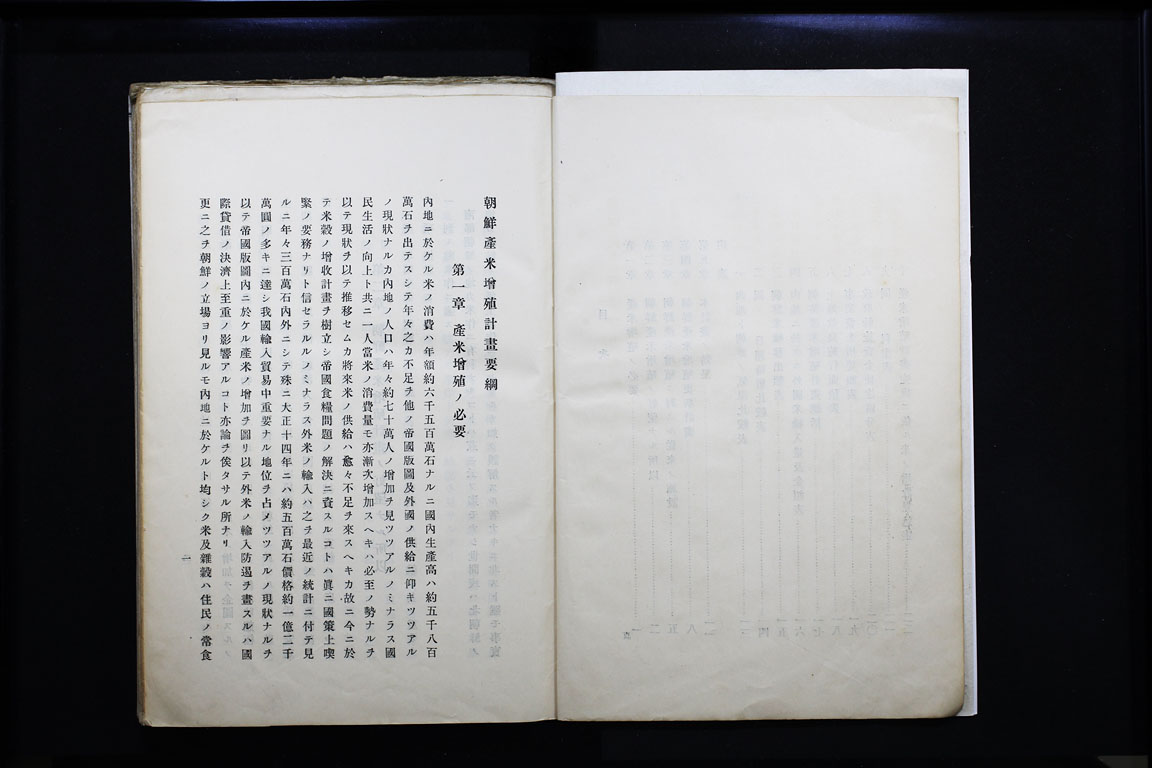 朝鮮產米增殖計畫要綱
第一章 產米增殖ノ必要
內地ニ於ケル米ノ消費ハ年額約六千五百萬石ナルニ國內生產高ハ約五千八百
萬石ヲ出テスシテ年々之カ不足ヲ他ノ帝國版圖及外國ノ供給ニ仰キツツアル
ノ現狀ナルカ內地ノ人口ハ年々約七十萬人ノ增加ヲ見ツツアルノミナラス國
民生活ノ向上ト共ニ一人當米ノ消費量モ亦漸次增加スヘキハ必至ノ勢ナルヲ
以テ現狀ヲ以テ推移セムカ將來米ノ供給ハ愈々不足ヲ來スヘキカ故ニ今ニ於
テ米穀ノ增收計畫ヲ樹立シ帝國食糧問題ノ解決ニ資スルコトハ眞ニ國策上喫
緊ノ要務ナリト信セラルルノミナラス外米ノ輸入ハ之ヲ最近ノ統計ニ付テ見
ルニ年々三百萬石內外ニシテ殊ニ大正十四年ニハ約五百萬石價格約一億二千
萬圓ノ多キニ達シ我國輸入貿易中重要ナル地位ヲ占メツツアルノ現狀ナルヲ
以テ帝國版圖內ニ於ケル產米ノ增加ヲ圖リ以テ外米ノ輸入防遏ヲ畫スルハ國
際貸借ノ決濟上至重ノ影響アルコト亦論ヲ俟タサル所ナリ
更ニ之ヲ朝鮮ノ立場ヨリ見ルモ內地ニ於ケルト均シク米及雜穀ハ住民ノ常食